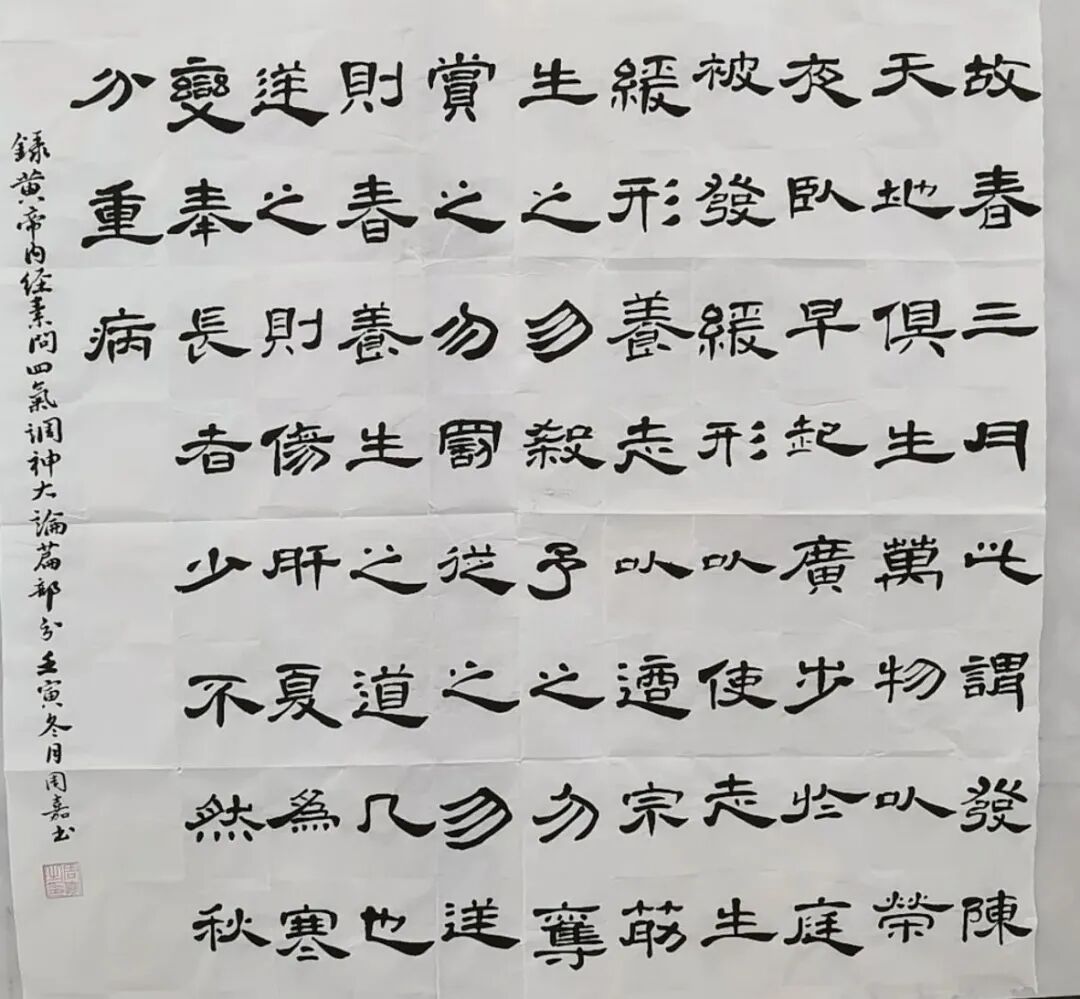 故春三月此謂發陳
天地俱生萬物以榮
夜臥早起廣步於庭
被發緩形以使志生
緩形養志以適宗筋
生之勿殺予之勿奪
賞之勿罰從之勿逆
則春養生之道几也
逆之則傷肝夏為寒
變奉長者少不然秋
分重病
録黄帝内经素问四氣调神大論篇部分壬寅冬月周嘉书